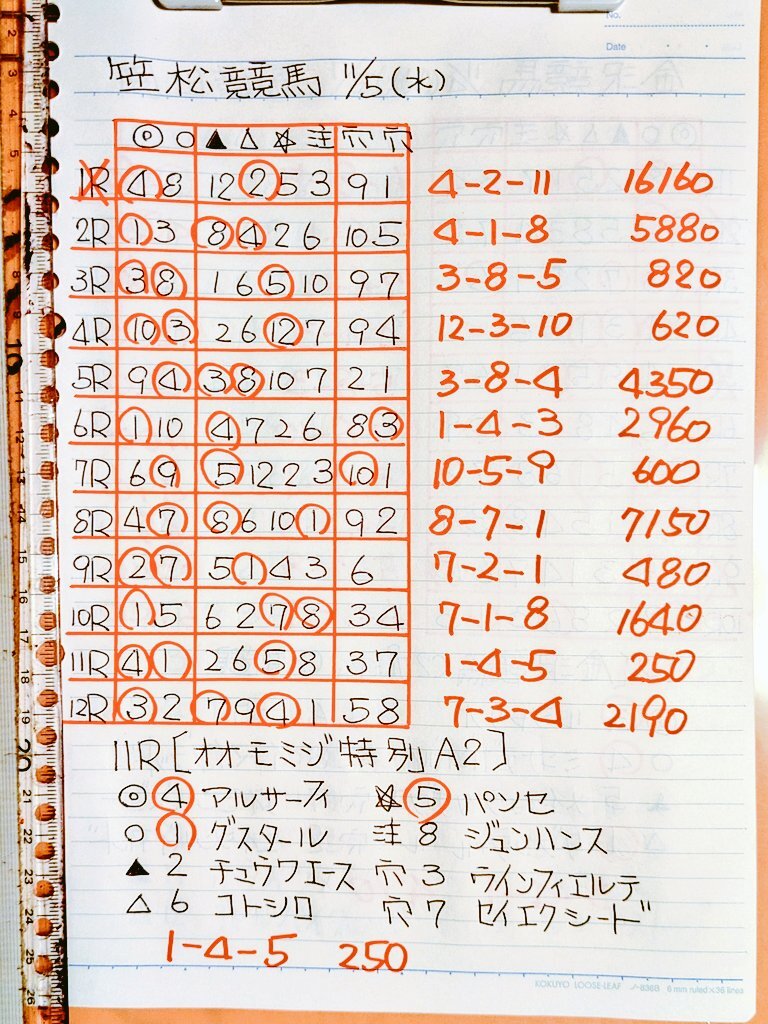 No.
Date
笠松競馬 11/5(水)
◎ ○ ▲ △ ☆ 注 穴 穴
1R 4 8 12 2 5 3 9 1 4-2-11 16160
2R 1 3 8 4 2 6 10 5 4-1-8 5880
3R 3 8 1 6 5 10 9 7 3-8-5 820
4R 10 3 2 6 12 7 9 4 12-3-10 620
5R 9 4 3 8 10 7 2 1 3-8-4 4350
6R 1 10 4 7 2 6 8 3 1-4-3 2960
7R 6 9 5 12 2 3 10 1 10-5-9 600
8R 4 7 8 6 10 1 9 2 8-7-1 7150
9R 2 7 5 1 4 3 6 7-2-1 480
10R 1 5 6 2 7 8 3 4 7-1-8 1640
11R 4 1 2 6 5 8 3 7 1-4-5 250
12R 3 2 7 9 4 1 5 8 7-3-4 2190
11R[オオモミジ特別A2]
◎ 4 アルサーフィ ☆ 5 パンセ
○ 1 グスタール 注 8 ジュンハンス
▲ 2 チュウワエース 穴 3 ウインフィエルテ
△ 6 コトシロ 穴 7 セイエクシード
1-4-5 250
KOKUYO LOOSE-LEAF ノ-836B 6 mm ruled×36 lines